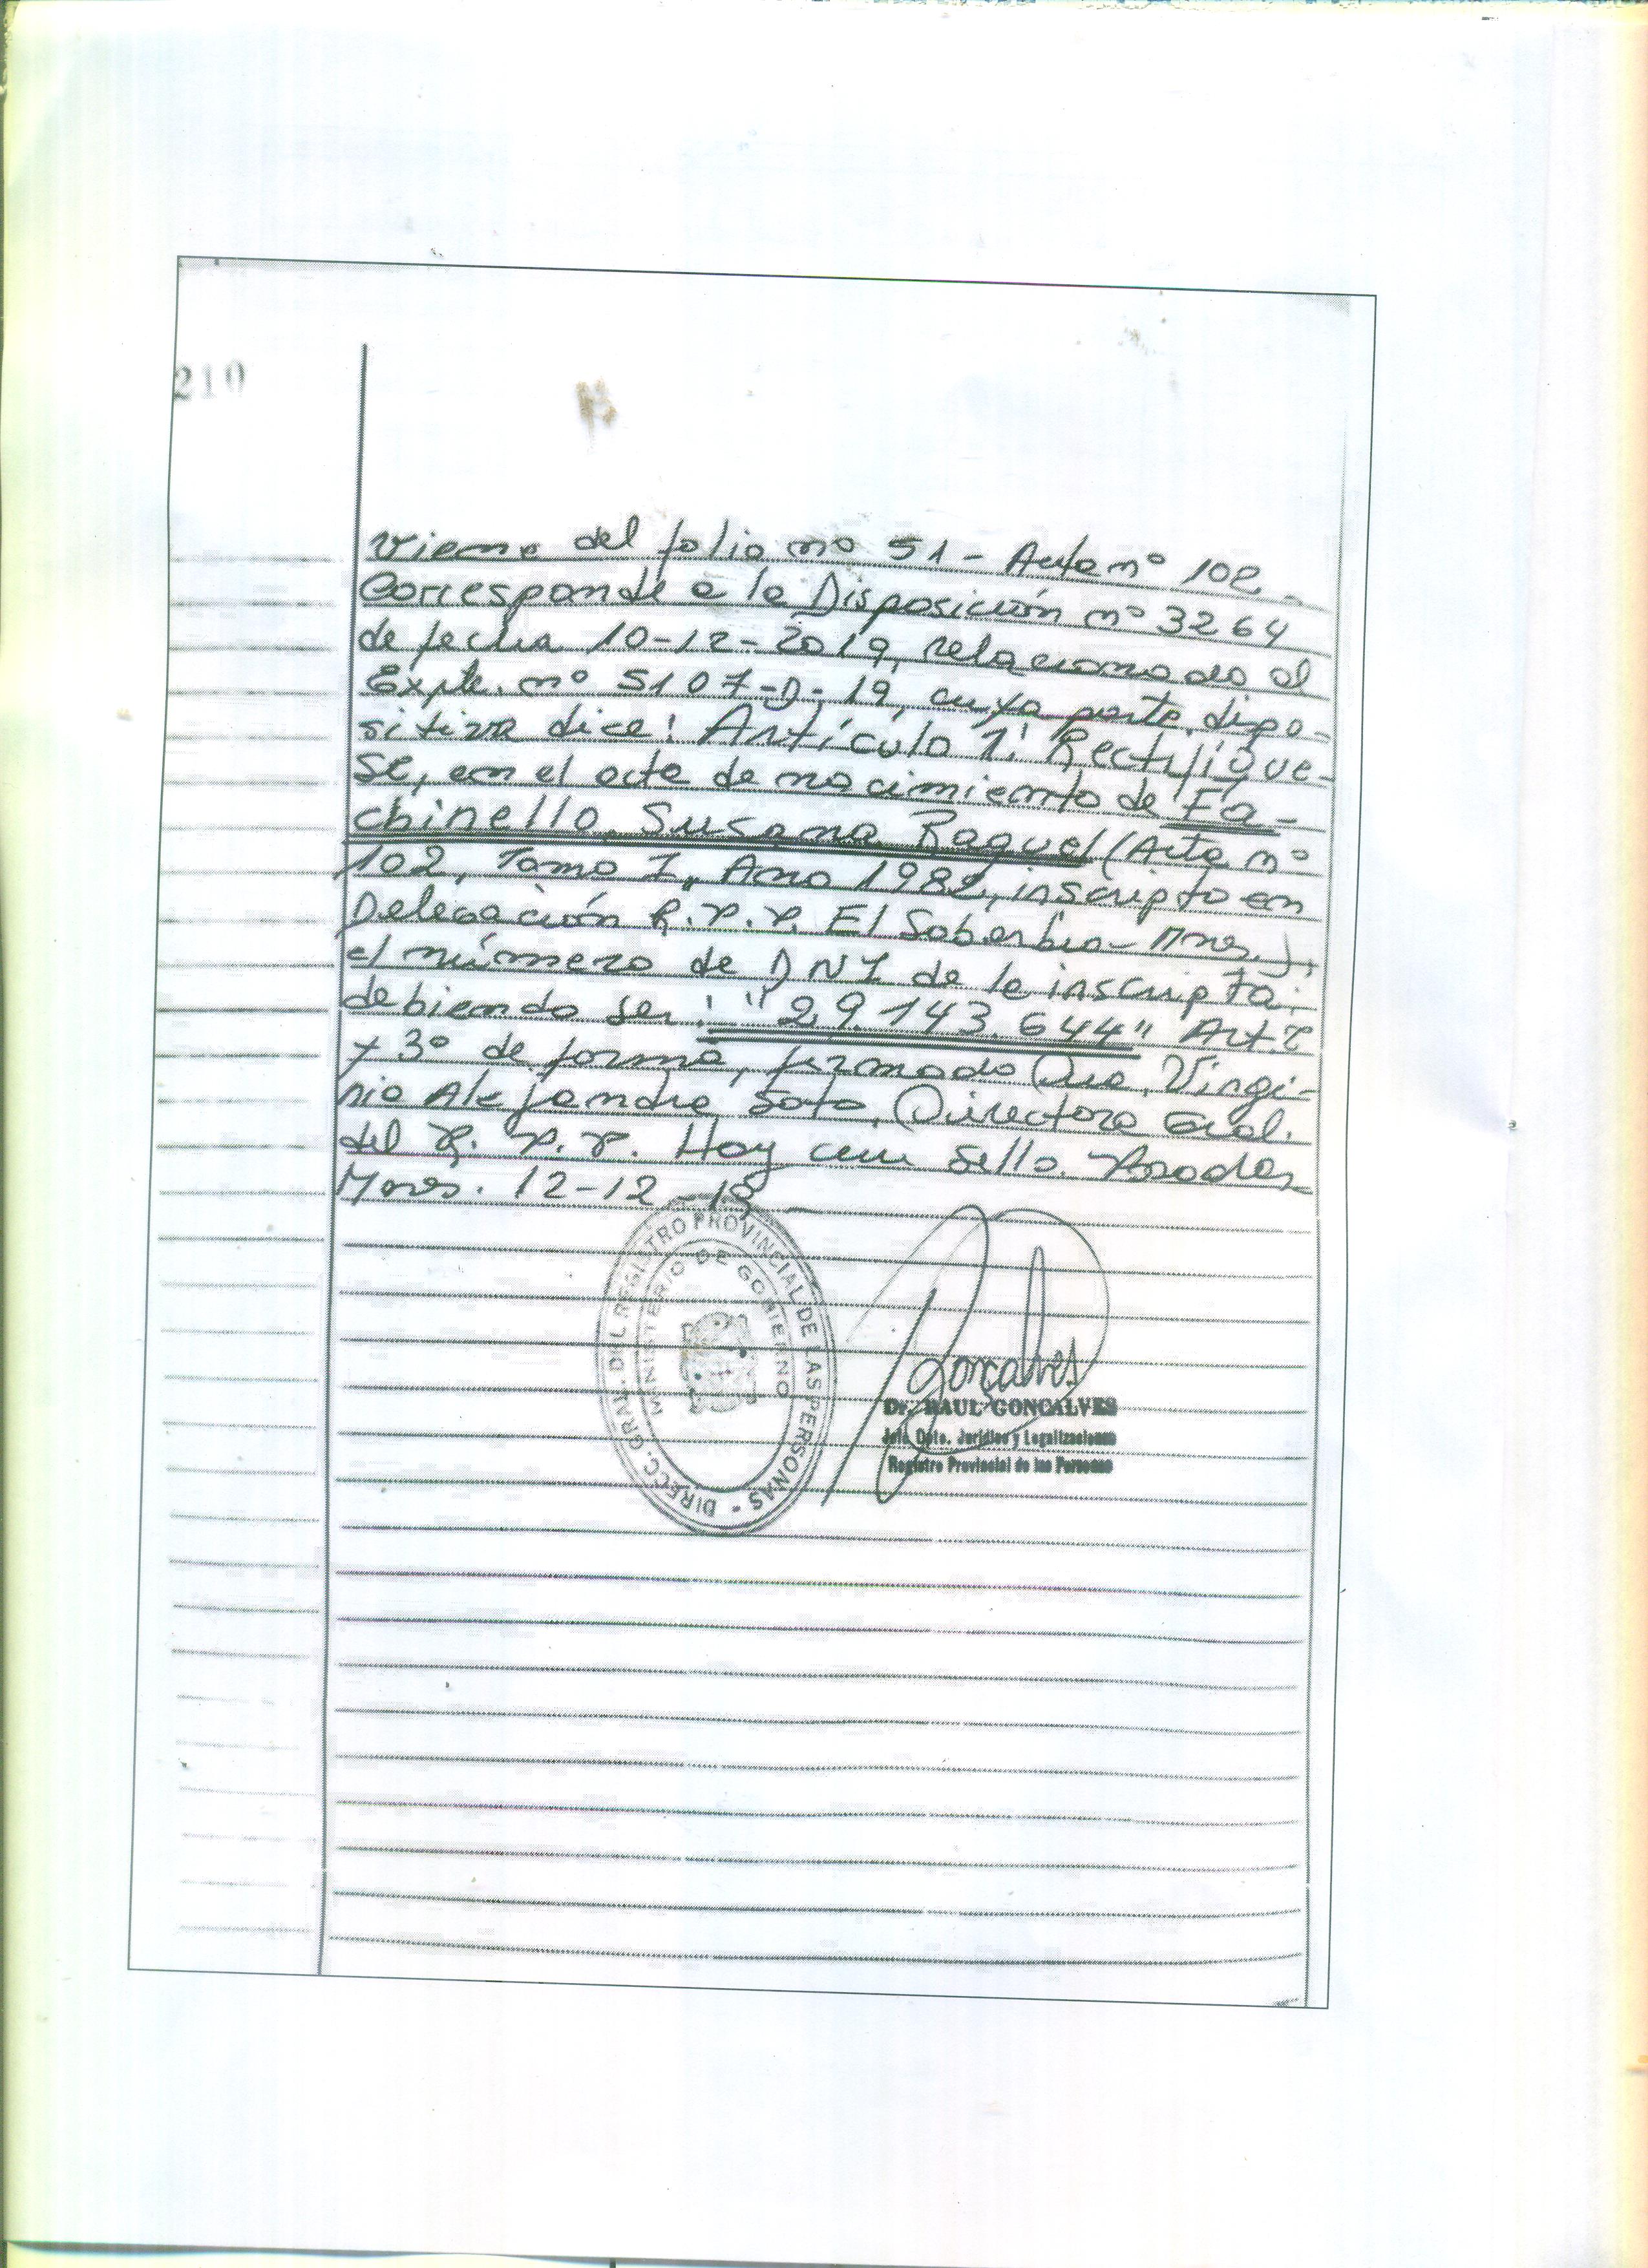 210
Viene del folio nº 51 - Acta nº 102 -
Corresponde a la Disposición nº 3264
de fecha 10-12-2019, relacionado al
Expte. nº 5107-D-19, cuya parte dispo-
sitiva dice: Artículo 1: Rectifique-
se, en el acta de nacimiento de Fa-
chinello, Susana Raquel (Acta nº
102, Tomo I, Año 1982, inscripto en
Delegación R.P.P. El Soberbio - Mnes.),
el número de DNI de la inscripta,
debiendo ser: "29.143.644" Art. 2
y 3º de forma, firmado Dra. Virgi-
nia Alejandra Soto, Directora Gral.
del R.P.P. Hay un sello. Posadas
Mnes. 12-12-19
DIRECC. GRAL. DEL REGISTRO PROVINCIAL DE LAS PERSONAS -
MINISTERIO DE GOBIERNO
Goncalves
Dr. RAUL GONCALVES
Jefe Dpto. Jurídico y Legalizaciones
Registro Provincial de las Personas